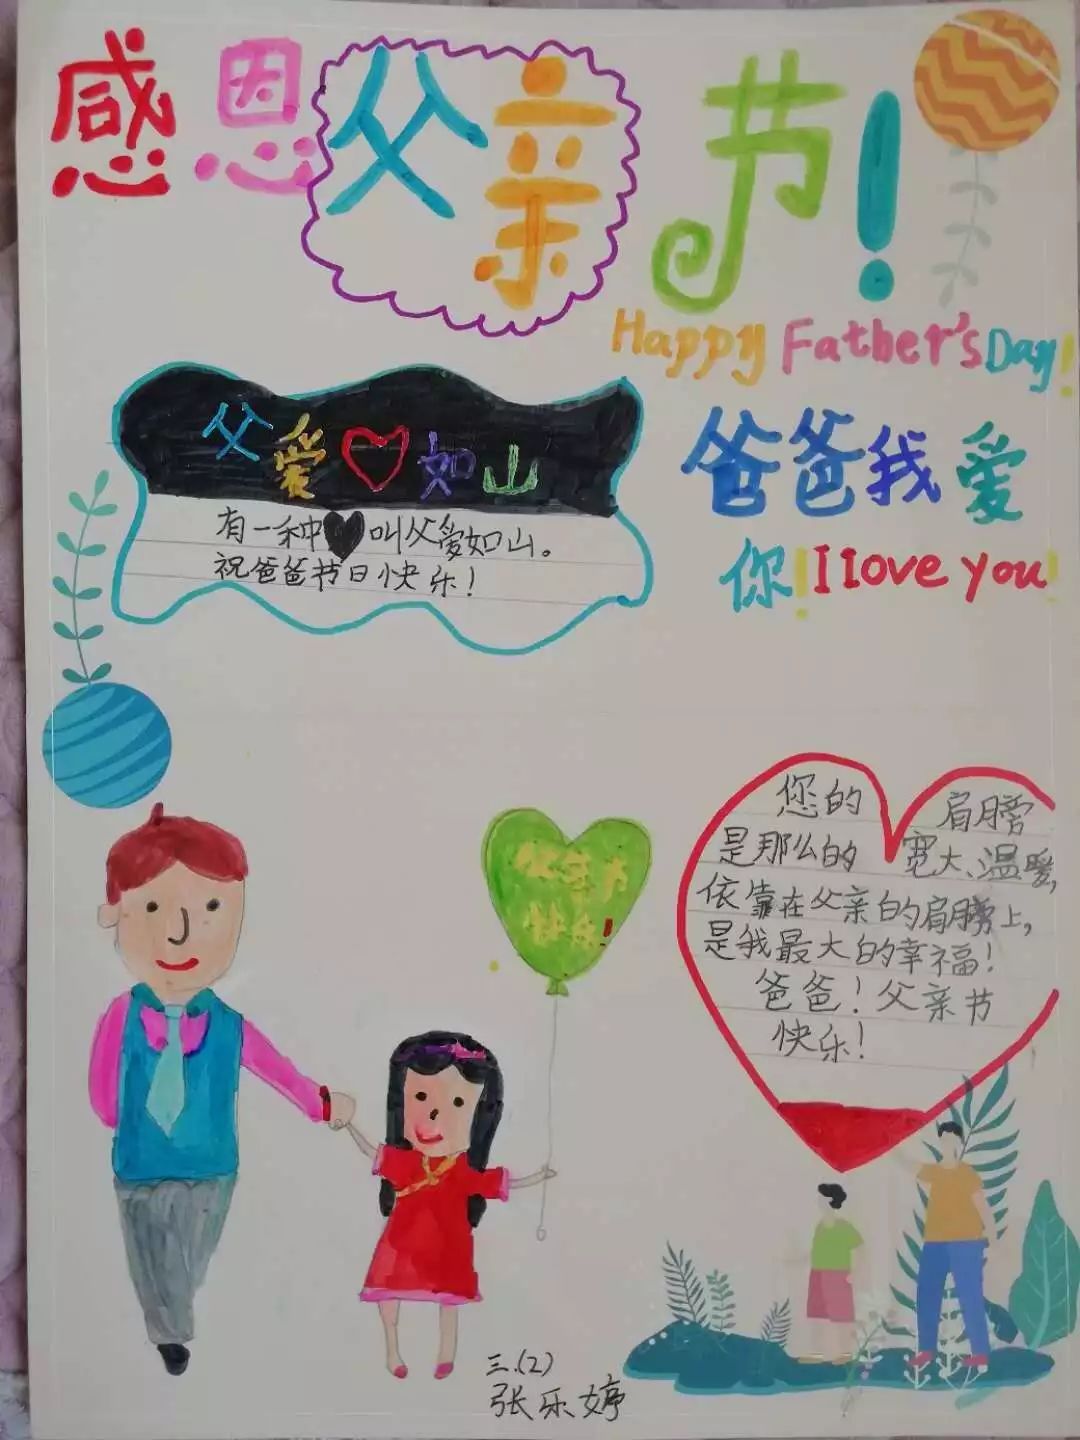 感恩父亲节!
Happy Father's Day!
父爱如山
爸爸我爱
你!I love you!
有一种叫父爱如山。
祝爸爸节日快乐!
您的肩膀
是那么的宽大、温暖,
依靠在父亲的肩膀上,
是我最大的幸福!
爸爸!父亲节
快乐!
父亲节
快乐!
三.(2)
张乐婷